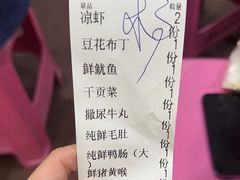 菜品 数量
凉虾 2份
豆花布丁 1份
鲜鱿鱼 1份
干贡菜 1份
撒尿牛丸 1份
纯鲜毛肚 1份
纯鲜鸭肠（大 1份
）
鲜猪黄喉 1份